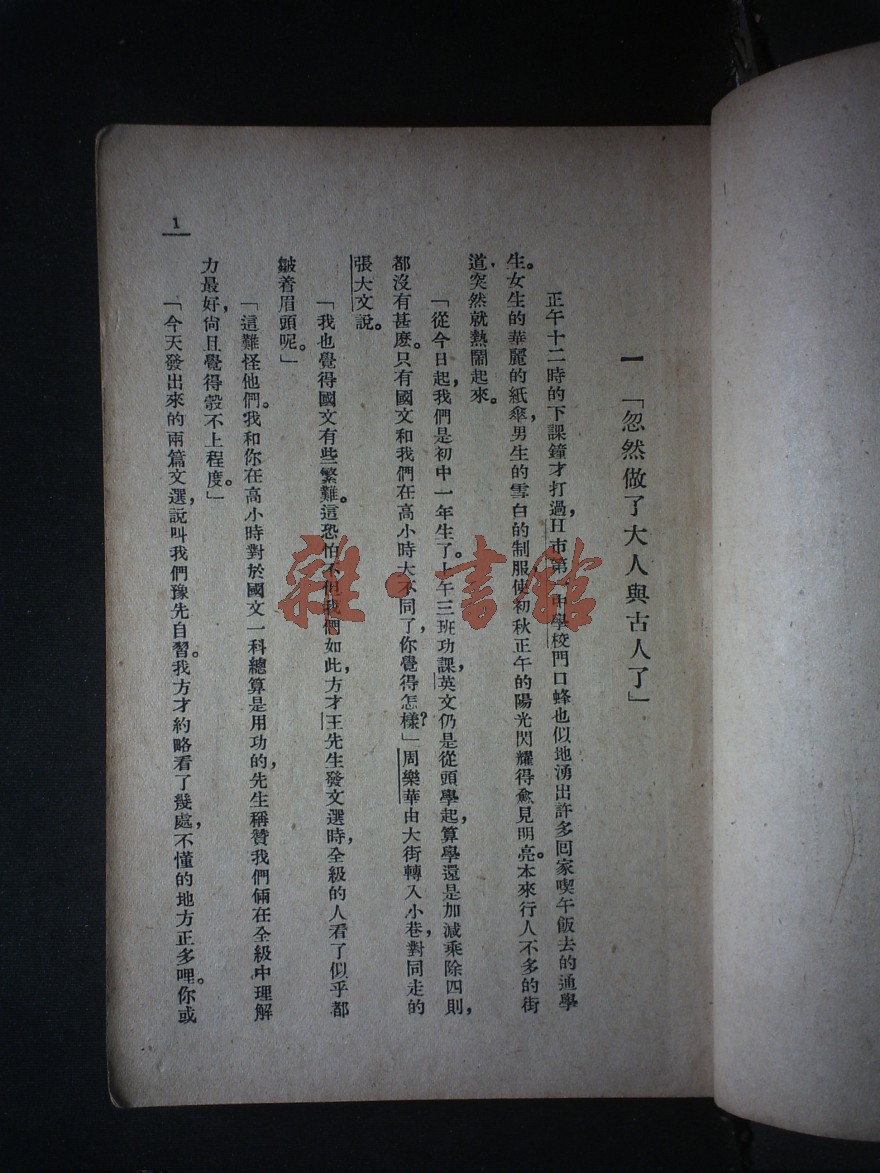 一　「忽然做了大人與古人了」
正午十二時的下課鐘才打過，H市第一中學校門口蜂也似地湧出許多回家喫午飯去的通學
生。女生的華麗的紙傘，男生的雪白的制服，使初秋正午的陽光閃耀得愈見明亮。本來行人不多的街
道，突然就熱鬧起來。
「從今日起，我們是初中一年生了。上午三班功課，英文仍是從頭學起，算學還是加減乘除四則，
都沒有甚麼。只有國文和我們在高小時大不同了，你覺得怎樣？」周樂華由大街轉入小巷，對同走的
張大文說。
「我也覺得國文有些繁難。這恐怕不但我們如此，方才王先生發文選時，全級的人看了似乎都
皺着眉頭呢。」
「這難怪他們。我和你在高小時對於國文一科總算是用功的，先生稱贊我們倆在全級中理解
力最好，尙且覺得彀不上程度。」
「今天發出來的兩篇文選，說叫我們豫先自習。我方才約略看了幾處，不懂的地方正多哩。你或
1
雜·書館